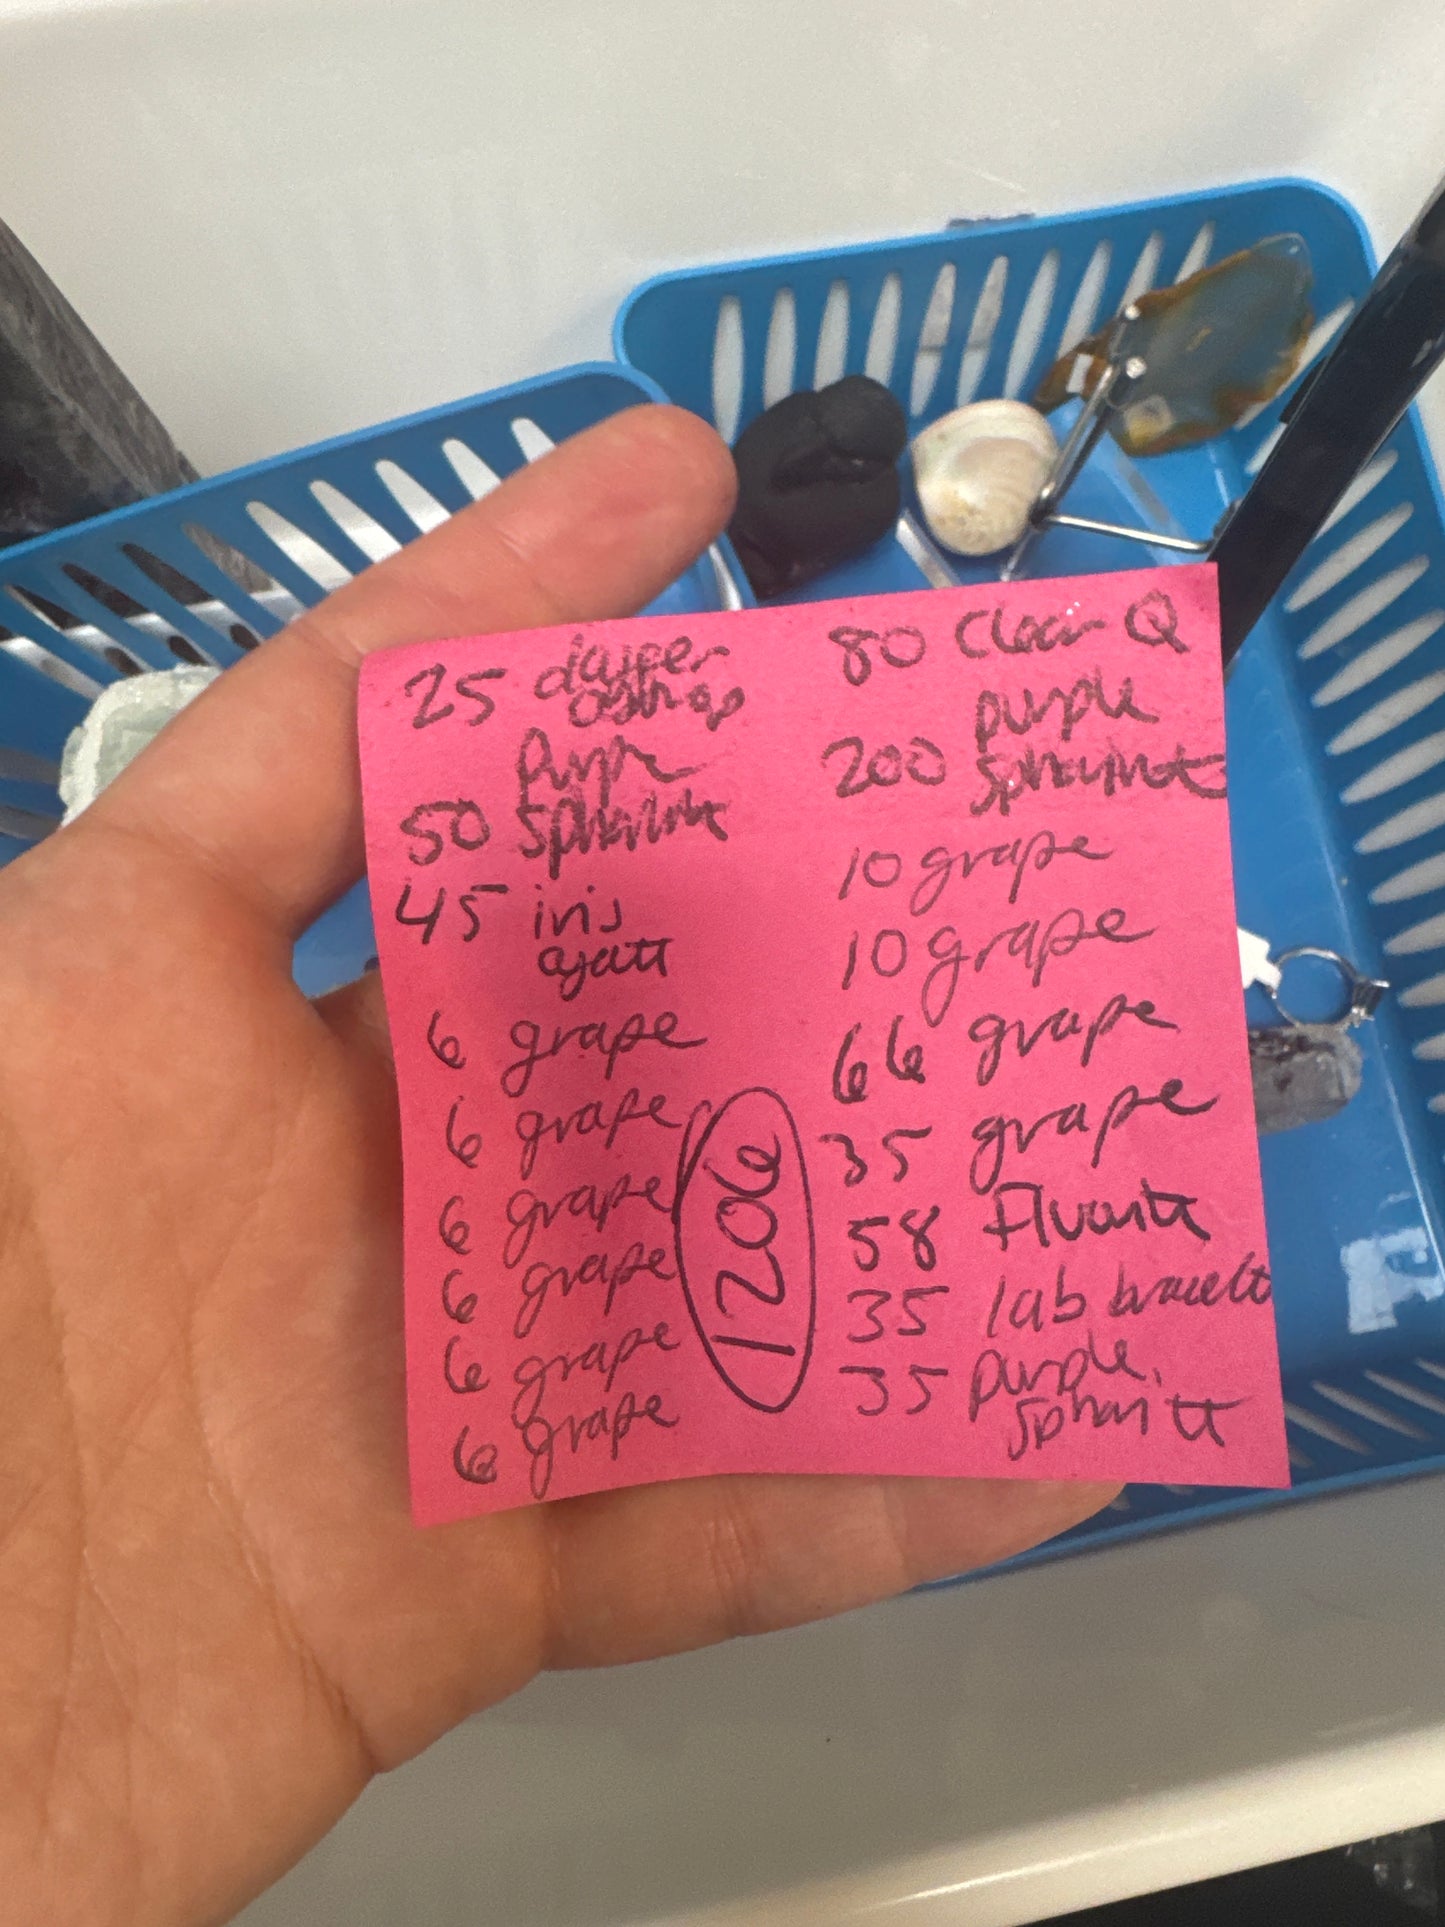 25
50 purple
45 iris
agatt
6 grape
6 grape
6 grape
6 grape
6 grape
6 grape
1206
80 Clear Q
purple
200
10 grape
10 grape
66 grape
35 grape
58 Fluorite
35 lab bracelet
35 purple